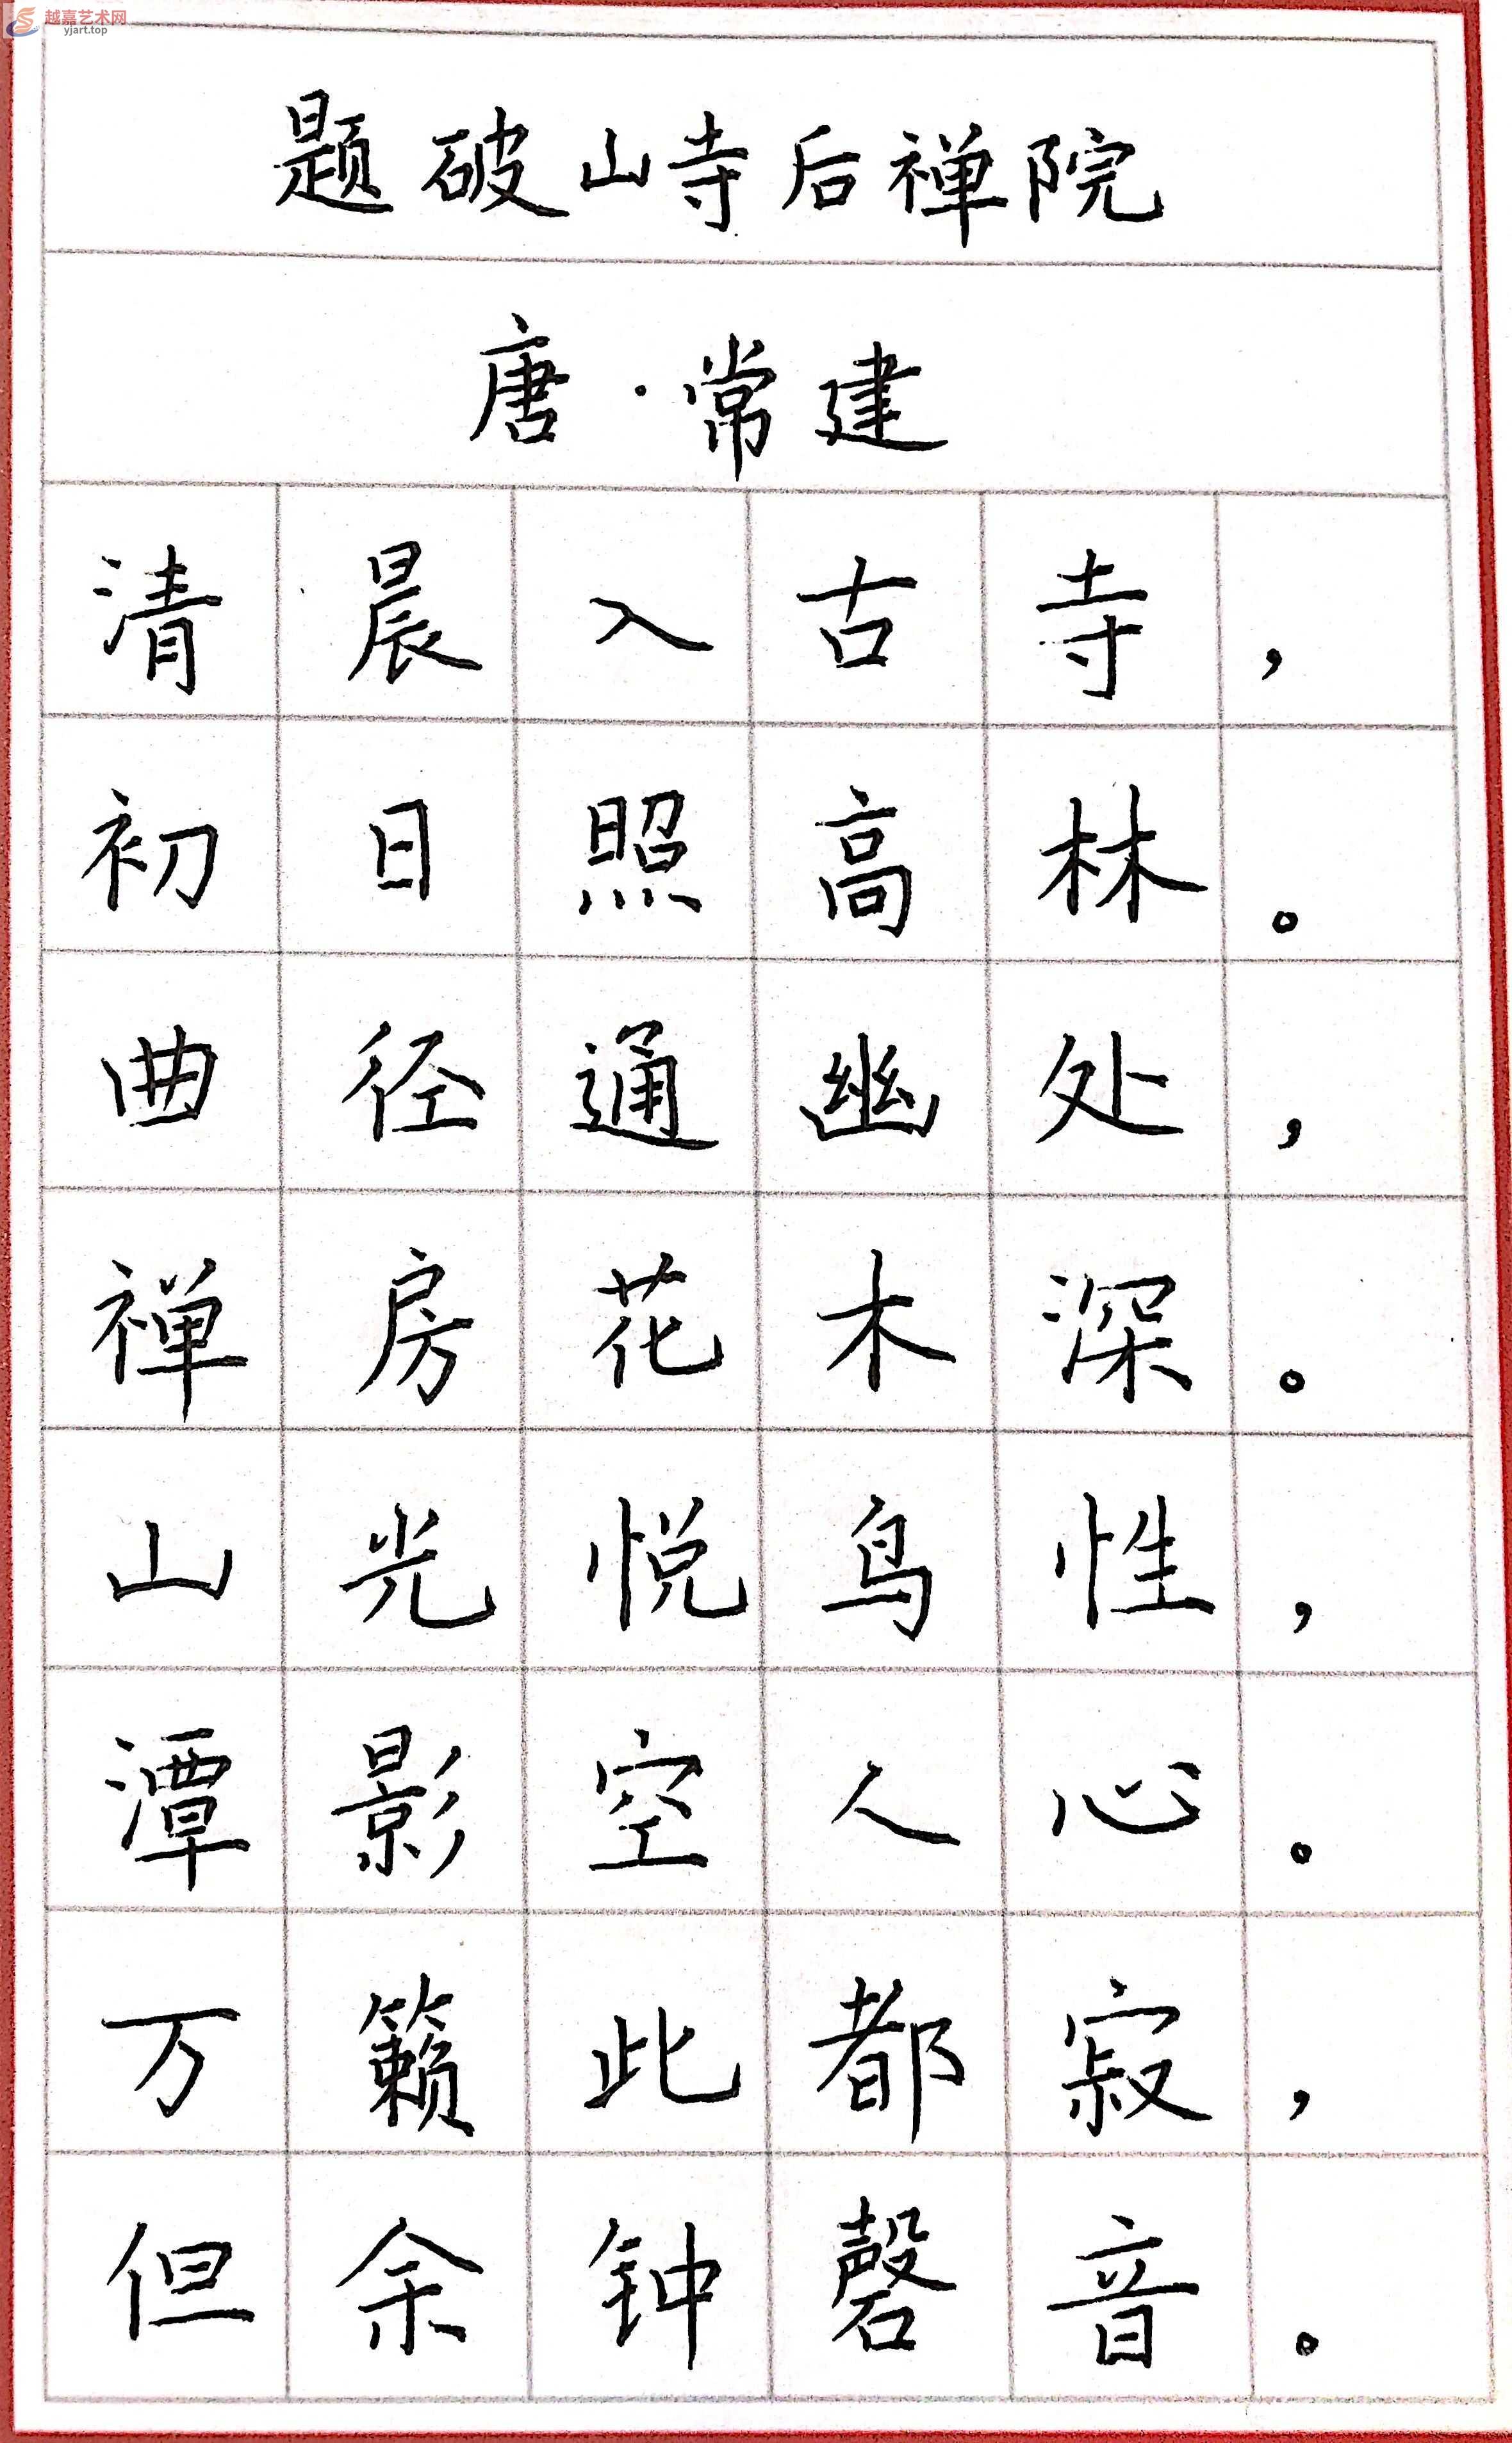 越嘉艺术网
yjart.top
题破山寺后禅院
唐·常建
清晨入古寺，
初日照高林。
曲径通幽处，
禅房花木深。
山光悦鸟性，
潭影空人心。
万籁此都寂，
但余钟磬音。